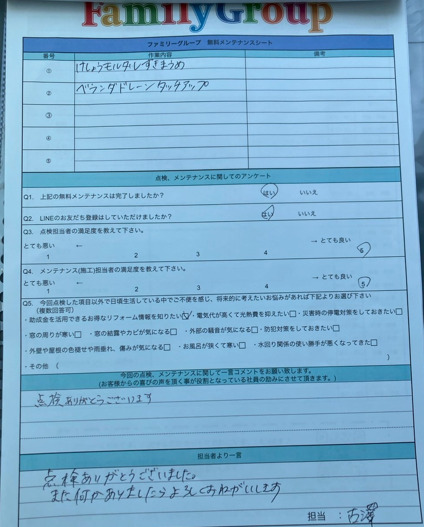 FamilyGroup
ファミリーグループ 無料メンテナンスシート
番号 作業内容 備考
① けしょうモルダルすきまうめ
② ベランダドレーンタッチアップ
③
④
⑤
点検、メンテナンスに関してのアンケート
Q1. 上記の無料メンテナンスは完了しましたか? はい いいえ
Q2. LINEのお友だち登録はしていただけましたか? はい いいえ
Q3. 点検担当者の満足度を教えて下さい。
とても悪い ← → とても良い
1 2 3 4 5
Q4. メンテナンス(施工)担当者の満足度を教えて下さい。
とても悪い ← → とても良い
1 2 3 4 5
Q5. 今回点検した項目以外で日頃生活している中でご不便を感じ、将来的に考えたいお悩みがあれば下記よりお選び下さい
(複数回答可)
・助成金を活用できるお得なリフォーム情報を知りたい☑ ・電気代が高くて光熱費を抑えたい□ ・災害時の停電対策をしておきたい□
・窓の周りが寒い□ ・窓の結露やカビが気になる□ ・外部の騒音が気になる□ ・防犯対策をしておきたい□
・外壁や屋根の色褪せや雨垂れ、傷みが気になる□ ・お風呂が狭くて寒い□ ・水回り関係の使い勝手が悪くなってきた□
・その他 ( )
今回の点検、メンテナンスに関して一言コメントをお願い致します。
(お客様からの喜びの声を頂く事が役割となっている社員の励みにさせて頂きます。)
点検ありがとうございます
担当者より一言
点検ありがとうございました。
また何かありましたらよろしくおねがいします
担当 : 古澤